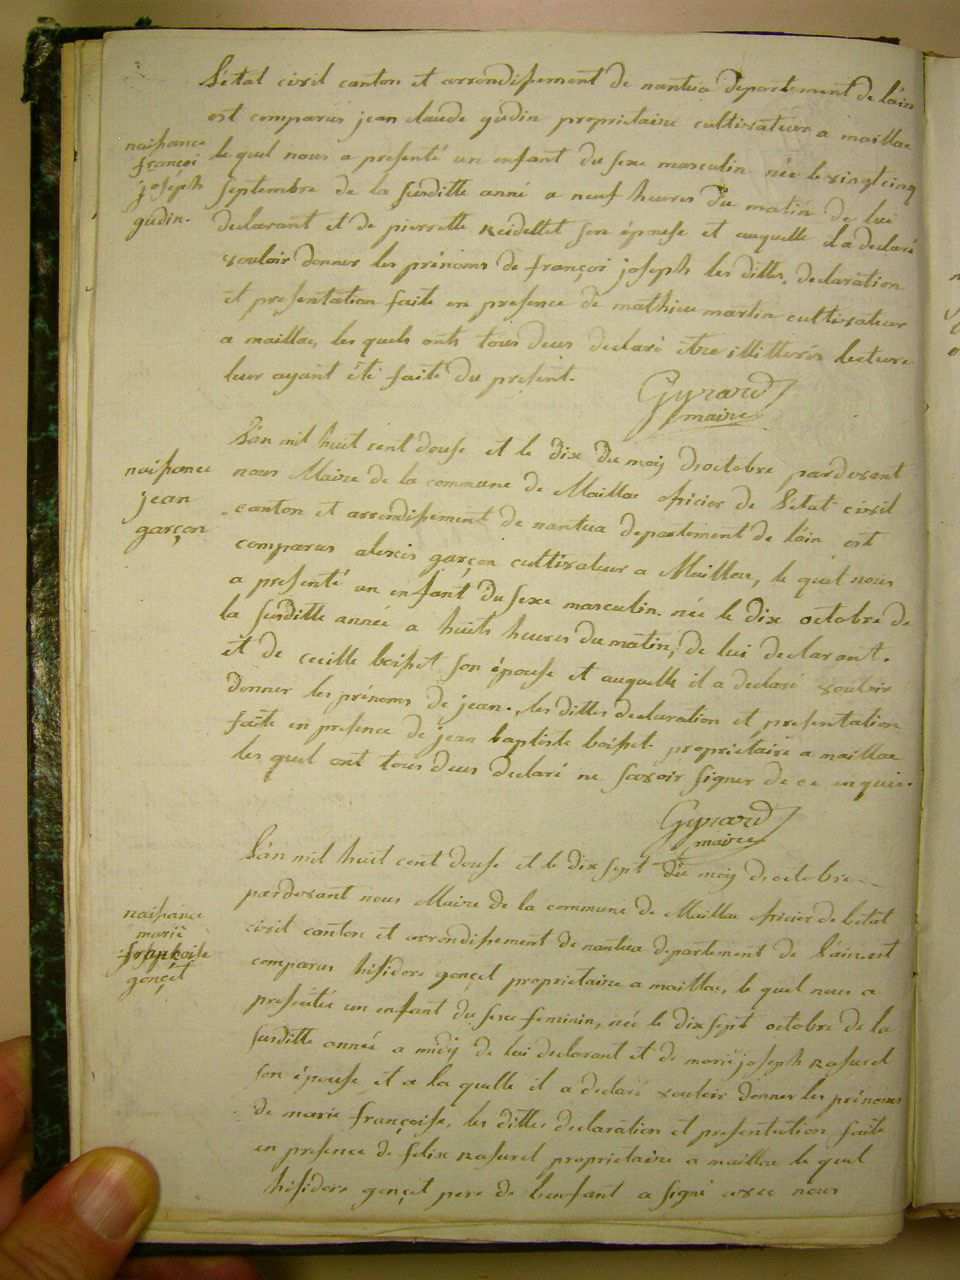 L'état civil canton et arrondissement de nantua département de l'ain
est comparus jean claude gudin propriétaire cultivateur a maillac
naissance
françoi
joséph
gudin.
le quel nous a presenté un enfant du sexe masculin née le vingt cinq
septembre de la susditte anné a neuf heures du matin de lui
declarant et de pierrette Reidellet son épouse et auquelle il a declaré
vouloir donner les prénoms de françoi joseph les dittes declaration
et presentation faite en presence de mathieu martin cultivateur
a maillac, les quels onts tous deus declaré être illitterés lecture
leur ayant été faite du present.
Gyrard
maire
L'an mil huit cent douse et le dix du moiy d'octobre pardevant
naissance
jean
garçon
nous Maire de la commune de Maillac oficier de l'état civil
canton et arrondissement de nantua departement de l'ain est
comparus alexis garçon cultivateur a Maillac, le quel nous
a presenté un enfant du sexe masculin née le dix octobre de
la susditte année a huits heures du matin, de lui declarant.
et de cecille boisset son épouse et auquelle il a declaré vouloir
donner les prénoms de jean. les dittes declaration et presentation
faite en presence de jean baptiste boisset propriétaire a maillac
les quel ont tous deus declaré ne savoir signer de ce enquis.
Gyrard
maire
L'an mil huit cent douse et le dix sept du moiy d'octobre
pardevant nous Maire de la commune de Maillac oficier de l'état
naissance
marie
françoise
gonçet
civil canton et arrondissement de nantua departement de l'ain est
comparus hisidore gonçet propriétaire a maillac, le quel nous a
presentée un enfant du sexe feminin, née le dix sept octobre de la
susditte année a midy de lui declarant et de marie joseph Rafurel
son épouse et a la quelle il a declaré vouloir donner les prénoms
de marie françoise, les dittes declaration et presentation faite
en presence de felix Rafurel propriétaire a maillac le quel
hisidore gonçet pere de l'enfant a signé avec nous